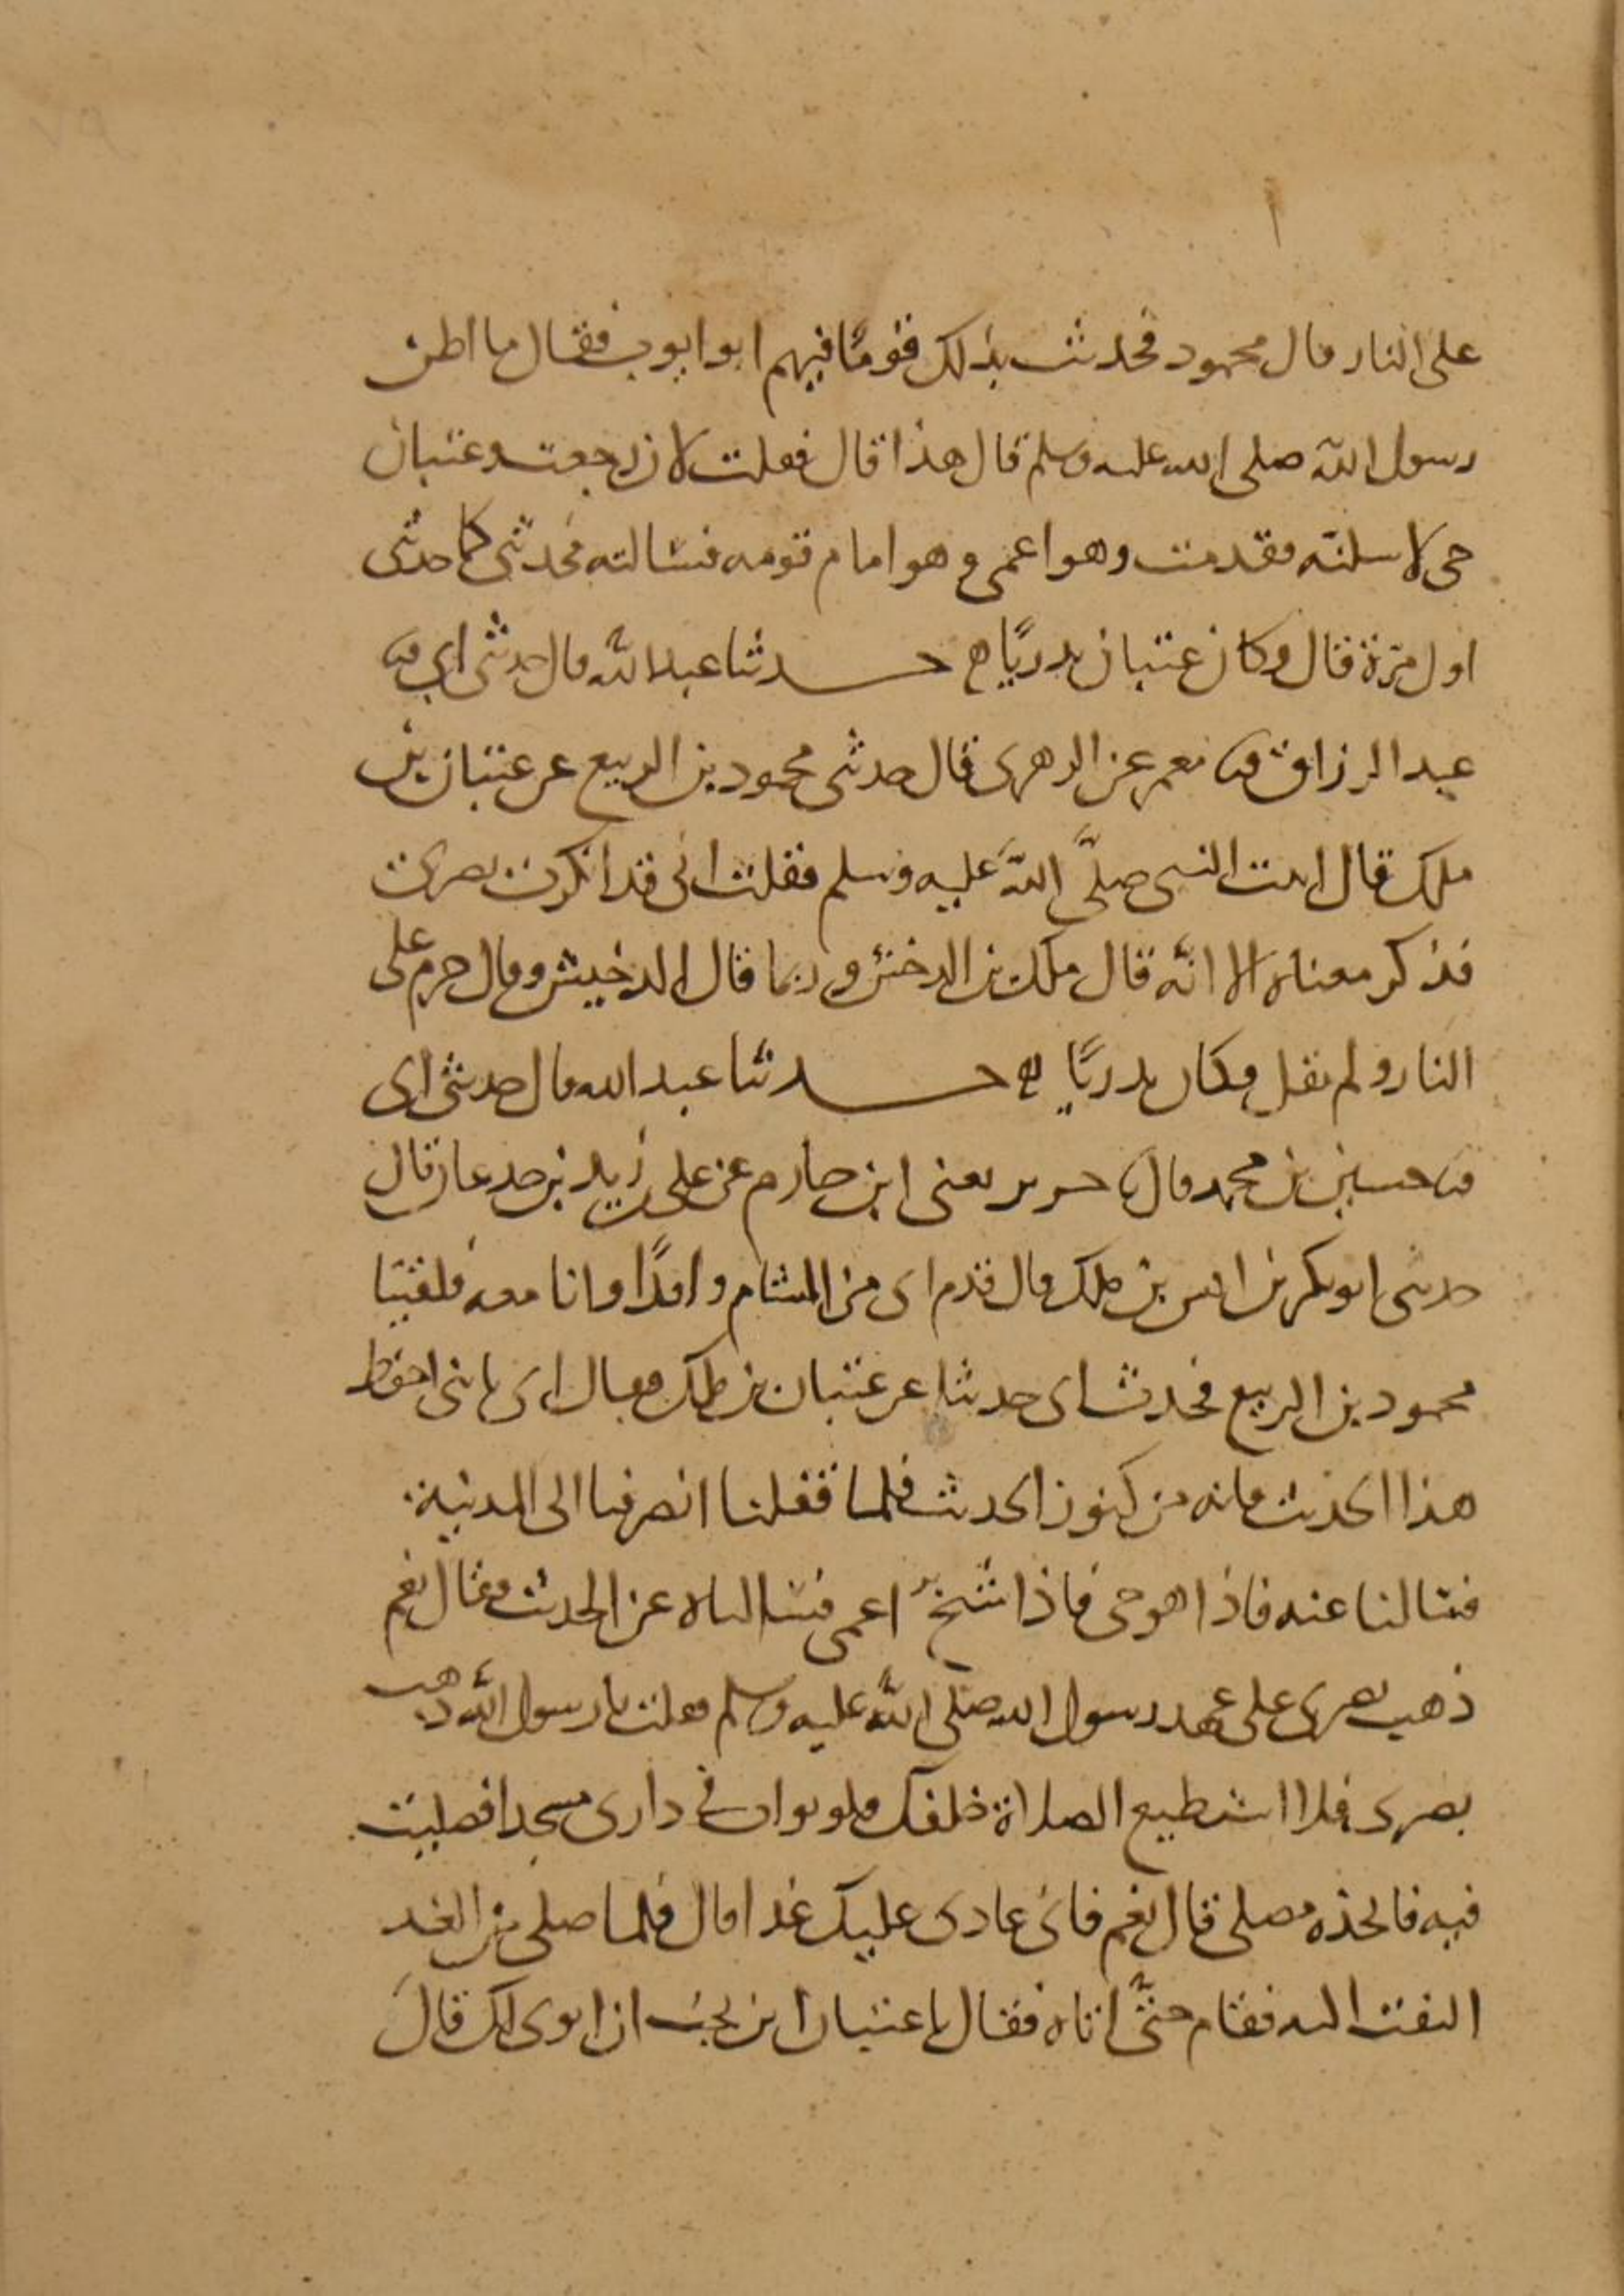 على النار قال محمود فحدثت بذلك قوما فيهم ابو ايوب فقال ما اظن
رسول الله صلى الله عليه وسلم قال هذا قال فقلت لان رجعت وعتبان
حى لاسلنه فقدمت وهو اعمى وهو امام قومه فسالته فحدثنى كما حدثنى
اول مرة قال وكان عتبان بدريًا ه حدثنا عبد الله قال حدثنى ابى ثنا
عبد الرزاق ثنا معمر عن الزهرى قال حدثنى محمود بن الربيع عن عتبان بن
ملك قال اتيت النبى صلَّى اللَّه عليه وسلم فقلت انى قد انكرت بصرى
فذكر معناه الا انَّه قال ملك بن الدخشن وربما قال الدخيش وقال حرم على
النار ولم يقل وكان بدريًا ه حدثنا عبد الله قال حدثنى ابى
ثنا حسين بن محمد قال ثنا جرير يعنى ابن حازم عن على بن زيد بن جدعان قال
حدثنى ابو بكر بن انس بن ملك قال قدم ابى من الشام وافدًا وانا معه فلقينا
محمود بن الربيع فحدث ابى حديثا عن عتبان بن ملك فقال ابى يا بنى احفظ
هذا الحديث فانه من كنوز الحديث فلما قفلنا انصرفنا الى المدينة
فسالنا عنه فاذا هو حى فاذا شيخ اعمى فسالناه عن الحديث فقال نعم
ذهب بصرى على عهد رسول الله صلى اللَّه عليه وسلم فقلت يا رسول اللَّه ذهب
بصرى فلا استطيع الصلاة خلفك فلو بوات فى دارى مسجدا فصليت
فيه فاتخذه مصلى قال نعم فانى غادى عليك غدا قال فلما صلى من الغد
التفت اليه فقام حتَّى اتاه فقال يا عتبان اين تحب ان ابوى لك قال